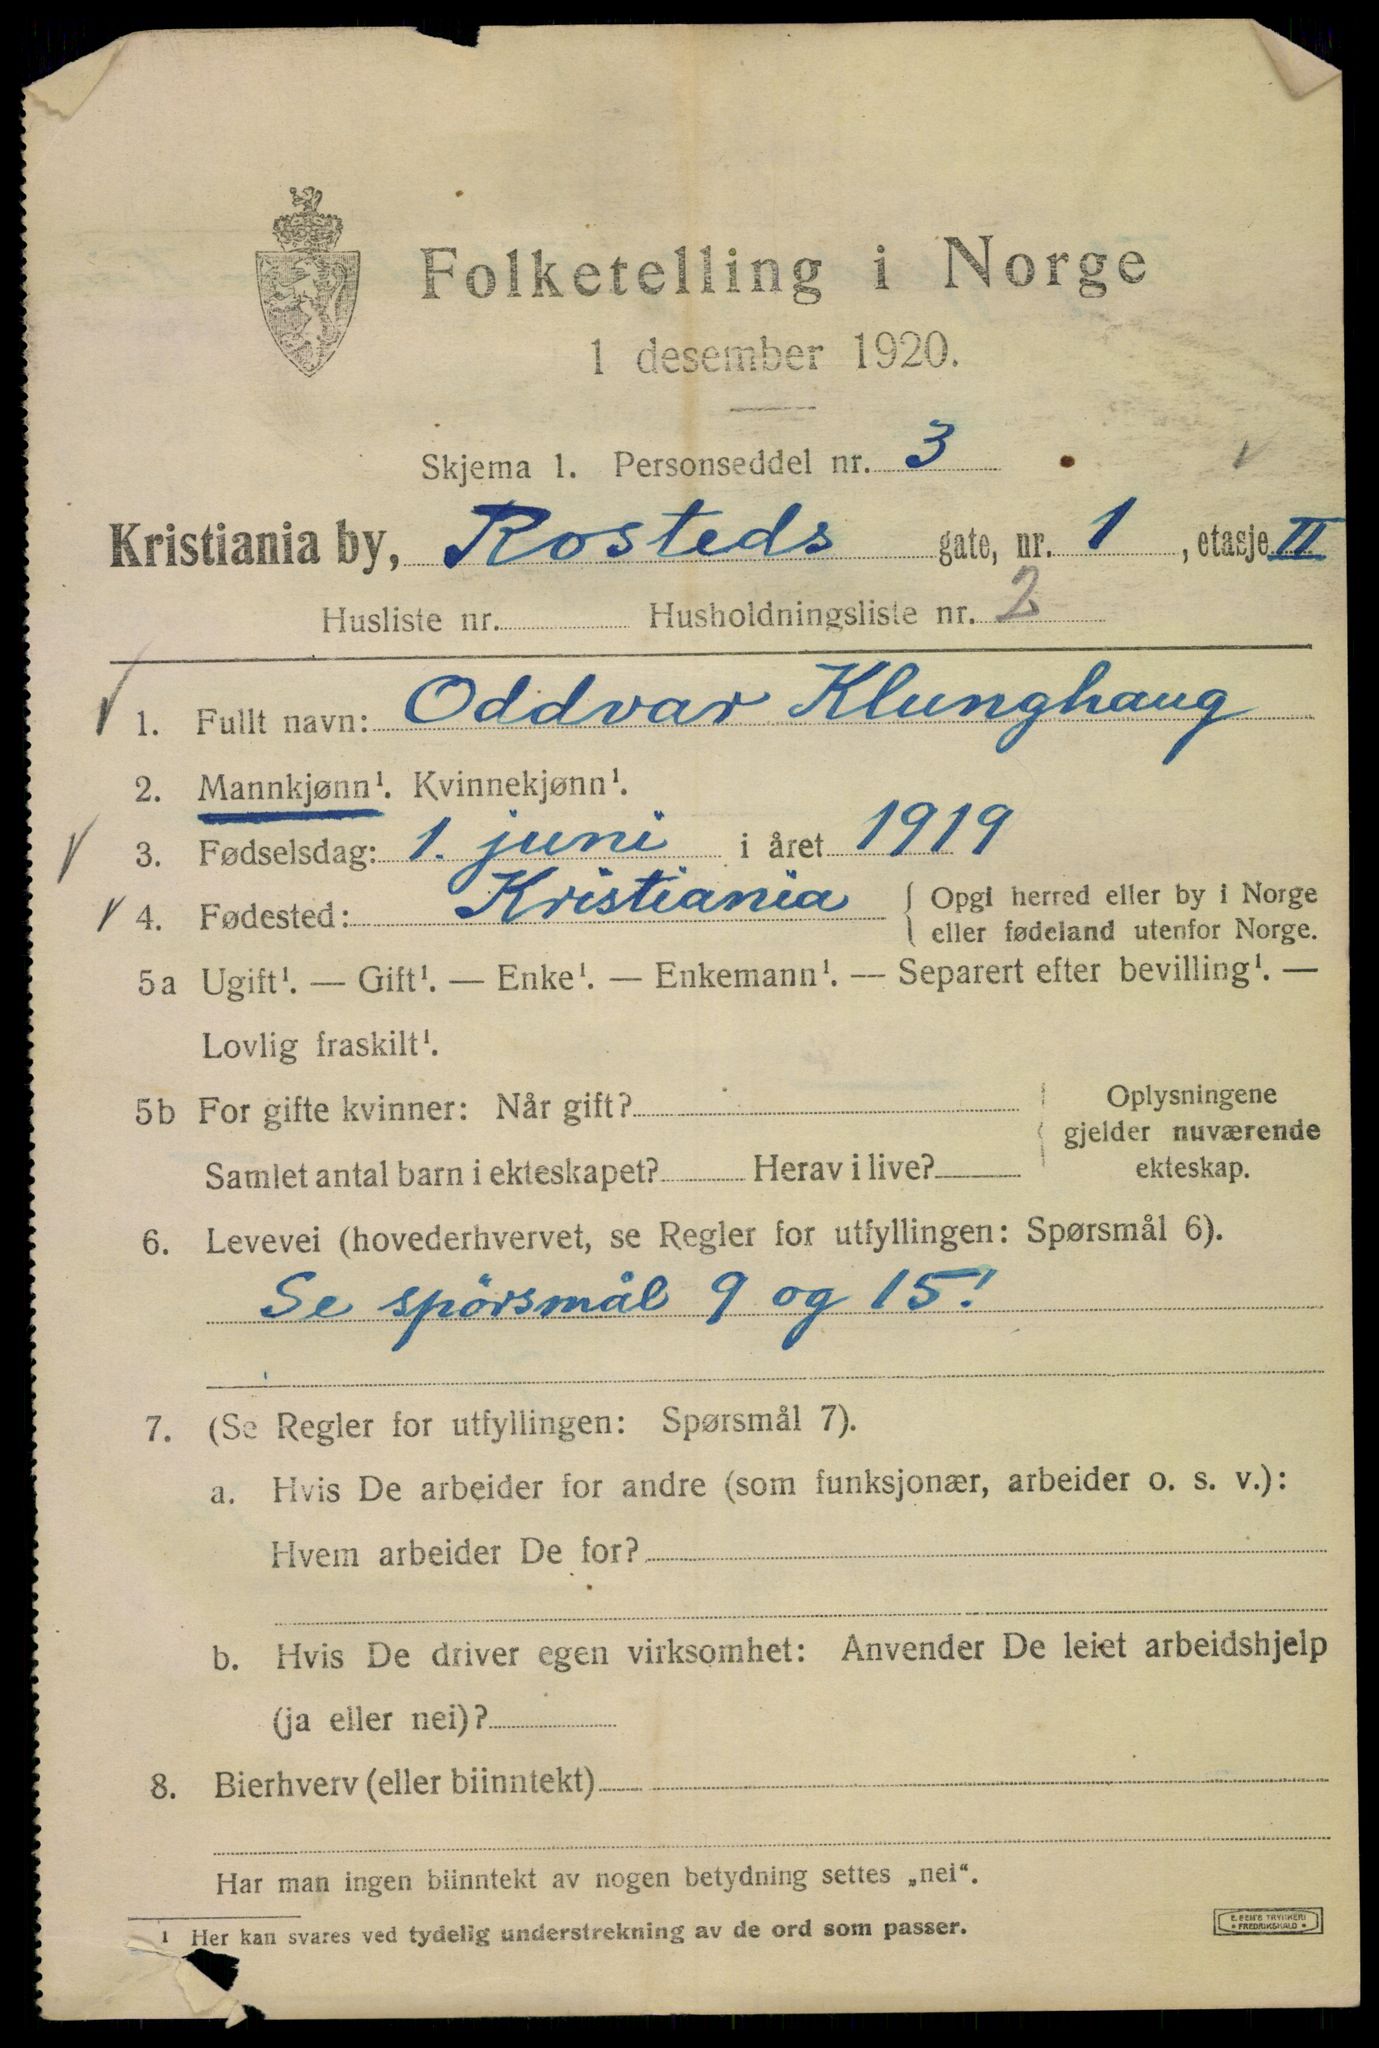 Folketelling i Norge
1 desember 1920.
Skjema 1. Personseddel nr. 3
Kristiania by, Rosteds gate, nr. 1, etasje II
Husliste nr. Husholdningsliste nr. 2
1. Fullt navn: Oddvar Klunghaug
2. Mannkjønn¹. Kvinnekjønn¹.
3. Fødselsdag: 1. juni i året 1919
4. Fødested: Kristiania { Opgi herred eller by i Norge
eller fødeland utenfor Norge.
5a Ugift¹. — Gift¹. — Enke¹. — Enkemann¹. — Separert efter bevilling¹. —
Lovlig fraskilt¹.
5b For gifte kvinner: Når gift?
Samlet antal barn i ekteskapet? Herav i live?
Oplysningene
gjelder nuværende
ekteskap.
6. Levevei (hovederhvervet, se Regler for utfyllingen: Spørsmål 6).
Se spörsmål 9 og 15!
7. (Se Regler for utfyllingen: Spørsmål 7).
a. Hvis De arbeider for andre (som funksjonær, arbeider o. s. v.):
Hvem arbeider De for?
b. Hvis De driver egen virksomhet: Anvender De leiet arbeidshjelp
(ja eller nei)?
8. Bierhverv (eller biinntekt)
Har man ingen biinntekt av nogen betydning settes „nei“.
¹ Her kan svares ved tydelig understrekning av de ord som passer.
E. SEM'S TRYKKERI
• FREDRIKSHALD •